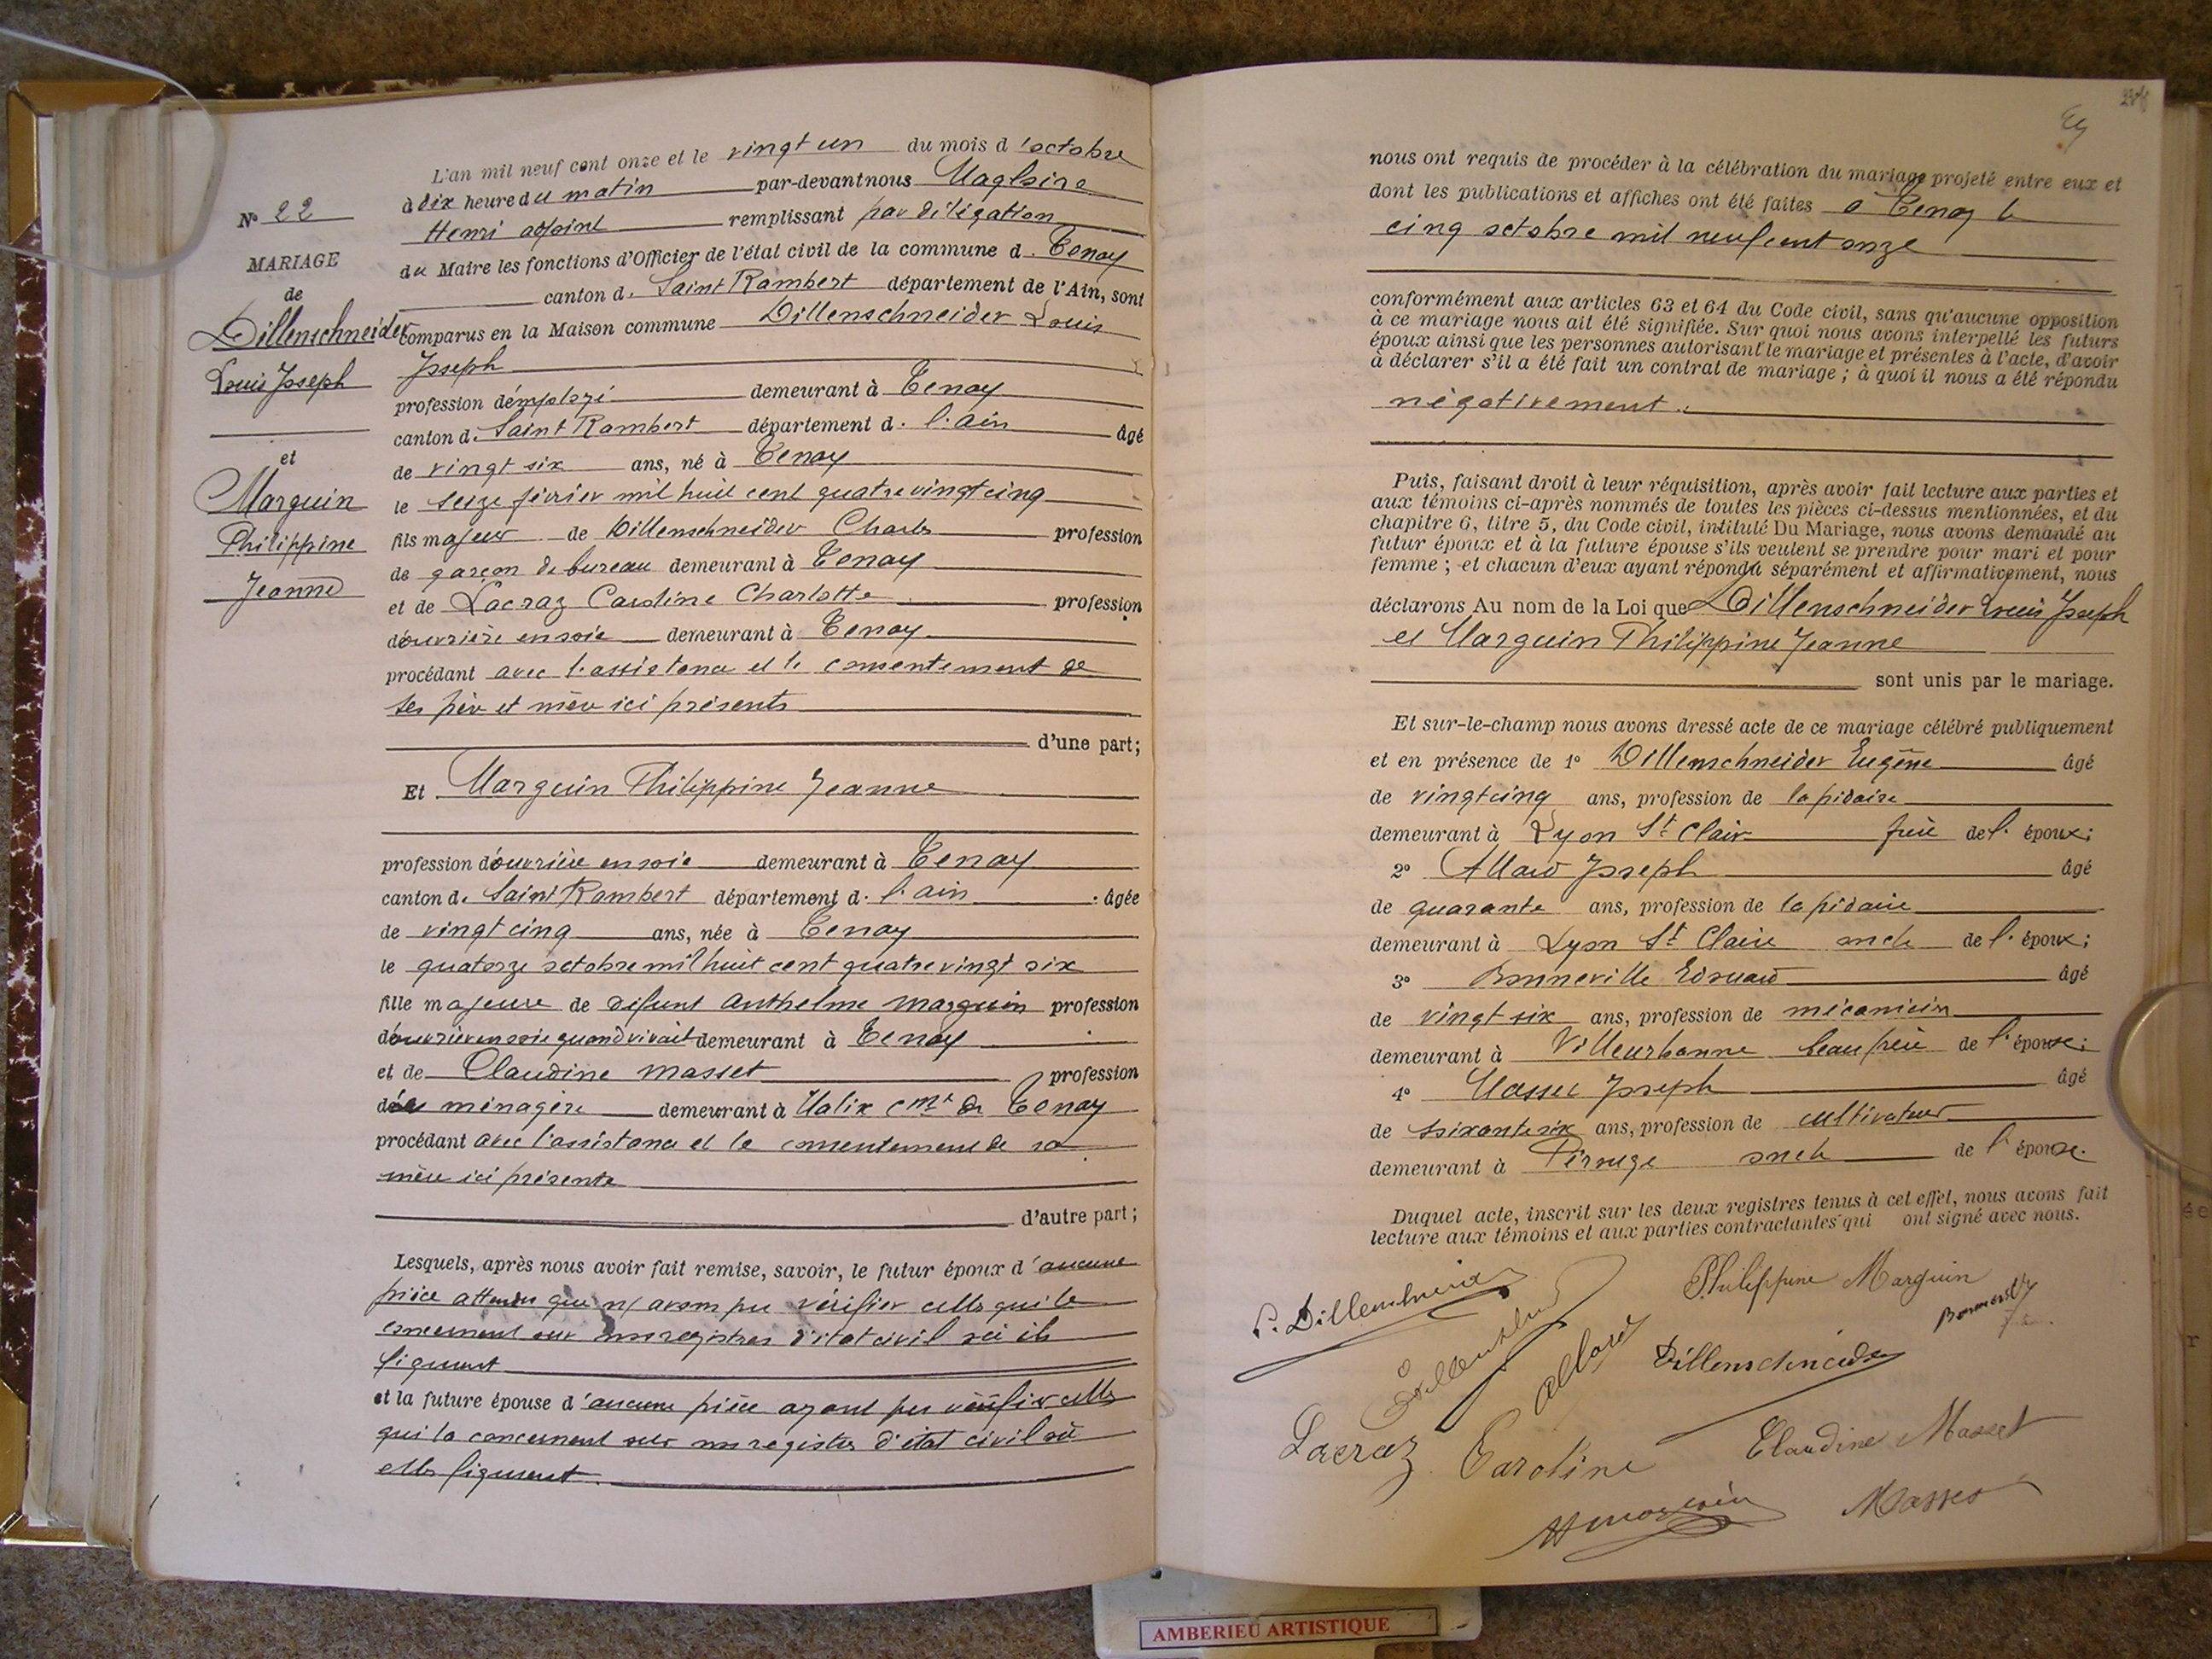 N° 22
MARIAGE
de
Dillenschneider
Louis Joseph
et
Marguin
Philippine
Jeanne
L'an mil neuf cent onze et le vingt un du mois d'octobre
à dix heure du matin par-devant nous Magloire
Henri adjoint remplissant par délégation
du Maire les fonctions d'Officier de l'état civil de la commune d. Tenay
canton d. Saint Rambert département de l'Ain, sont
comparus en la Maison commune Dillenschneider Louis
Joseph
profession d'employé demeurant à Tenay
canton d. Saint Rambert département d. l'ain âgé
de vingt six ans, né à Tenay
le seize février mil huit cent quatre vingt cinq
fils majeur de Dillenschneider Charles profession
de garçon de bureau demeurant à Tenay
et de Lacraz Caroline Charlotte profession
d'ouvrière en soie demeurant à Tenay
procédant avec l'assistance et le consentement de
ses père et mère ici présents
d'une part;
Et Marguin Philippine Jeanne
profession d'ouvrière en soie demeurant à Tenay
canton d. Saint Rambert département d. l'ain âgée
de vingt cinq ans, née à Tenay
le quatorze octobre mil huit cent quatre vingt six
fille majeure de défunt Anthelme Marguin profession
d'ouvrier en soie quand vivait demeurant à Tenay
et de Claudine Masset profession
de ménagère demeurant à Malix cne de Tenay
procédant avec l'assistance et le consentement de sa
mère ici présente
d'autre part;
Lesquels, après nous avoir fait remise, savoir, le futur époux d'aucune
pièce attendu que n/ avons pu vérifier celles qui le
concernent sur nos registres d'état civil où ils
figurent
et la future épouse d'aucune pièce ayant pu vérifier celles
qui la concernent sur nos registres d'état civil où
elles figurent.
nous ont requis de procéder à la célébration du mariage projeté entre eux et
dont les publications et affiches ont été faites à Tenay le
cinq octobre mil neuf cent onze
conformément aux articles 63 et 64 du Code civil, sans qu'aucune opposition
à ce mariage nous ait été signifiée. Sur quoi nous avons interpellé les futurs
époux ainsi que les personnes autorisant le mariage et présentes à l'acte, d'avoir
à déclarer s'il a été fait un contrat de mariage; à quoi il nous a été répondu
négativement.
Puis, faisant droit à leur réquisition, après avoir fait lecture aux parties et
aux témoins ci-après nommés de toutes les pièces ci-dessus mentionnées, et du
chapitre 6, titre 5, du Code civil, intitulé Du Mariage, nous avons demandé au
futur époux et à la future épouse s'ils veulent se prendre pour mari et pour
femme; et chacun d'eux ayant répondu séparément et affirmativement, nous
déclarons Au nom de la Loi que Dillenschneider Louis Joseph
et Marguin Philippine Jeanne
sont unis par le mariage.
Et sur-le-champ nous avons dressé acte de ce mariage célébré publiquement
et en présence de 1° Dillenschneider Eugène âgé
de vingt cinq ans, profession de lapidaire
demeurant à Lyon St Clair frère de l. époux;
2° Allard Joseph âgé
de quarante ans, profession de lapidaire
demeurant à Lyon St Claire oncle de l. époux;
3° Bonneville Edouard âgé
de vingt six ans, profession de mécanicien
demeurant à Villeurbanne beau frère de l'épouse;
4° Masset Joseph âgé
de soixante six ans, profession de cultivateur
demeurant à Pérouge oncle de l'épouse.
Duquel acte, inscrit sur les deux registres tenus à cet effet, nous avons fait
lecture aux témoins et aux parties contractantes qui ont signé avec nous.
Philippine Marguin
Allard
Dillenschneider
Lacraz Caroline
Claudine Masset
Masset
AMBERIEU ARTISTIQUE